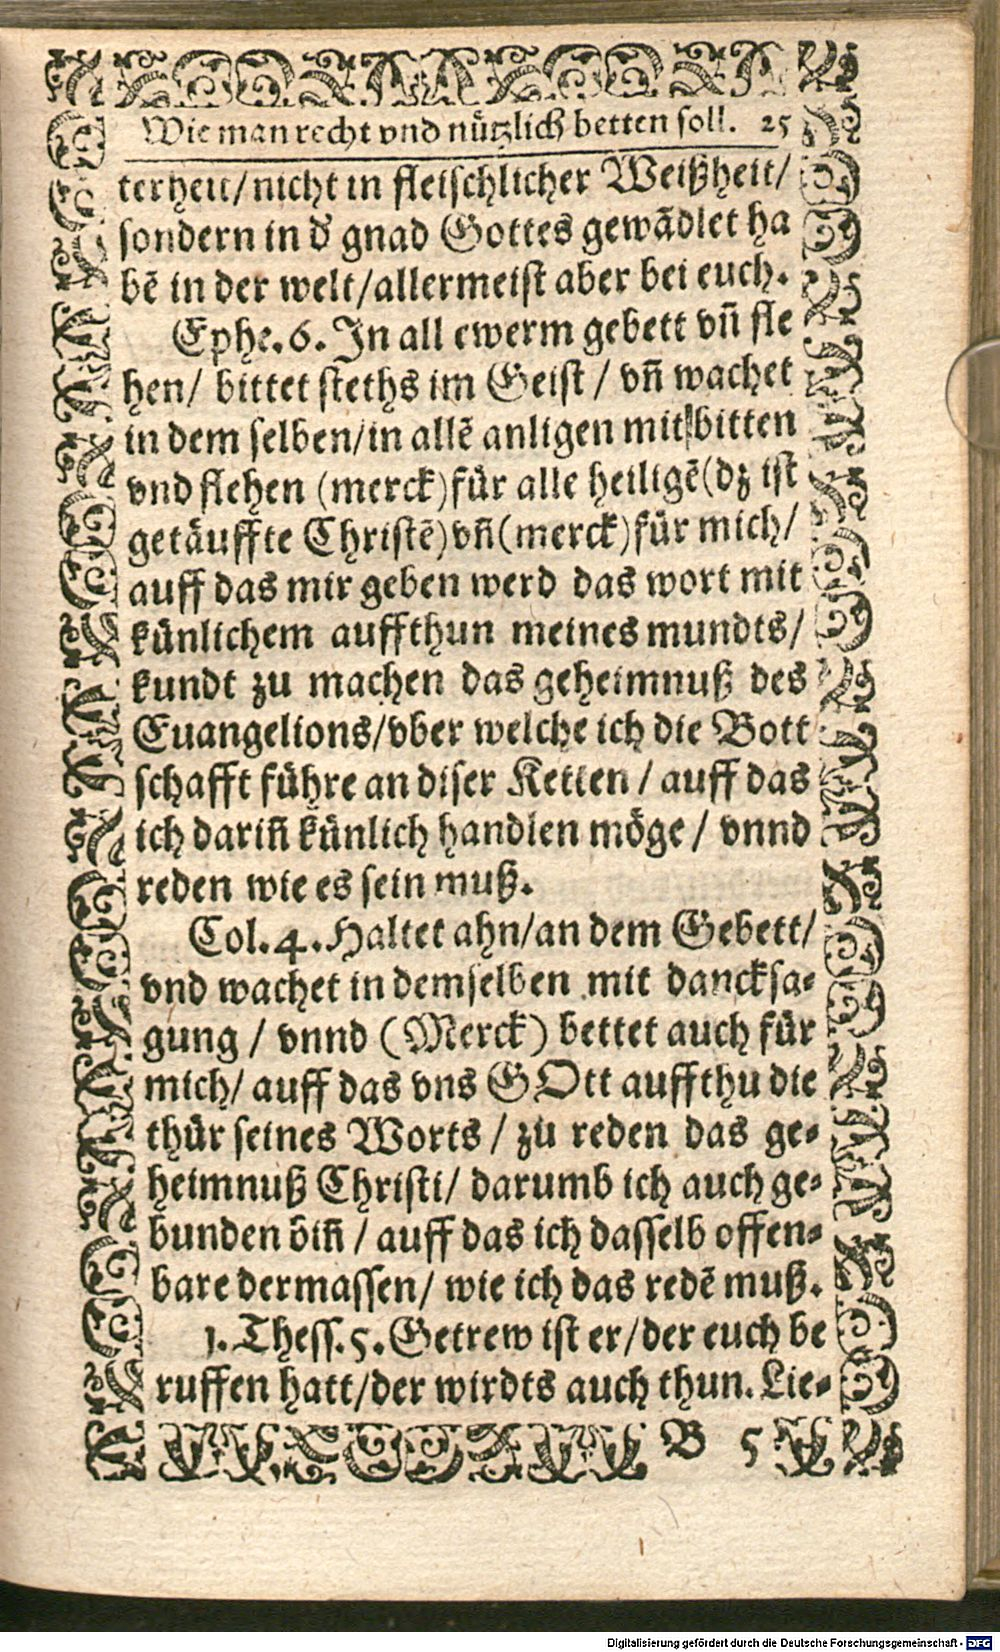 Wie man recht vnd nützlich betten soll. 25
terheit/nicht in fleischlicher Weißheit/
sondern in d̕ gnad Gottes gewãdlet ha
bẽ in der welt/allermeist aber bei euch.
Ephe. 6. In all ewerm gebett vñ fle
hen/ bittet steths im Geist / vñ wachet
in dem selben/in allẽ anligen mit bitten
vnd flehen (merck) für alle heiligẽ (dz ist
getäuffte Christẽ) vñ (merck) für mich/
auff das mir geben werd das wort mit
künlichem auffthun meines mundts/
kundt zu machen das geheimnuß des
Euangelions/vber welche ich die Bott
schafft führe an diser Ketten / auff das
ich dariñ künlich handlen möge / vnnd
reden wie es sein muß.
Col. 4. Haltet ahn/an dem Gebett/
vnd wachet in demselben mit dancksa-
gung / vnnd (Merck) bettet auch für
mich/ auff das vns GOtt auffthu die
thür seines Worts / zu reden das ge-
heimnuß Christi/ darumb ich auch ge-
bunden biñ / auff das ich dasselb offen-
bare dermassen/ wie ich das redẽ muß.
1. Thess. 5. Getrew ist er/der euch be
ruffen hatt/der wirdts auch thun. Lie-
B 5
Digitalisierung gefördert durch die Deutsche Forschungsgemeinschaft - DFG